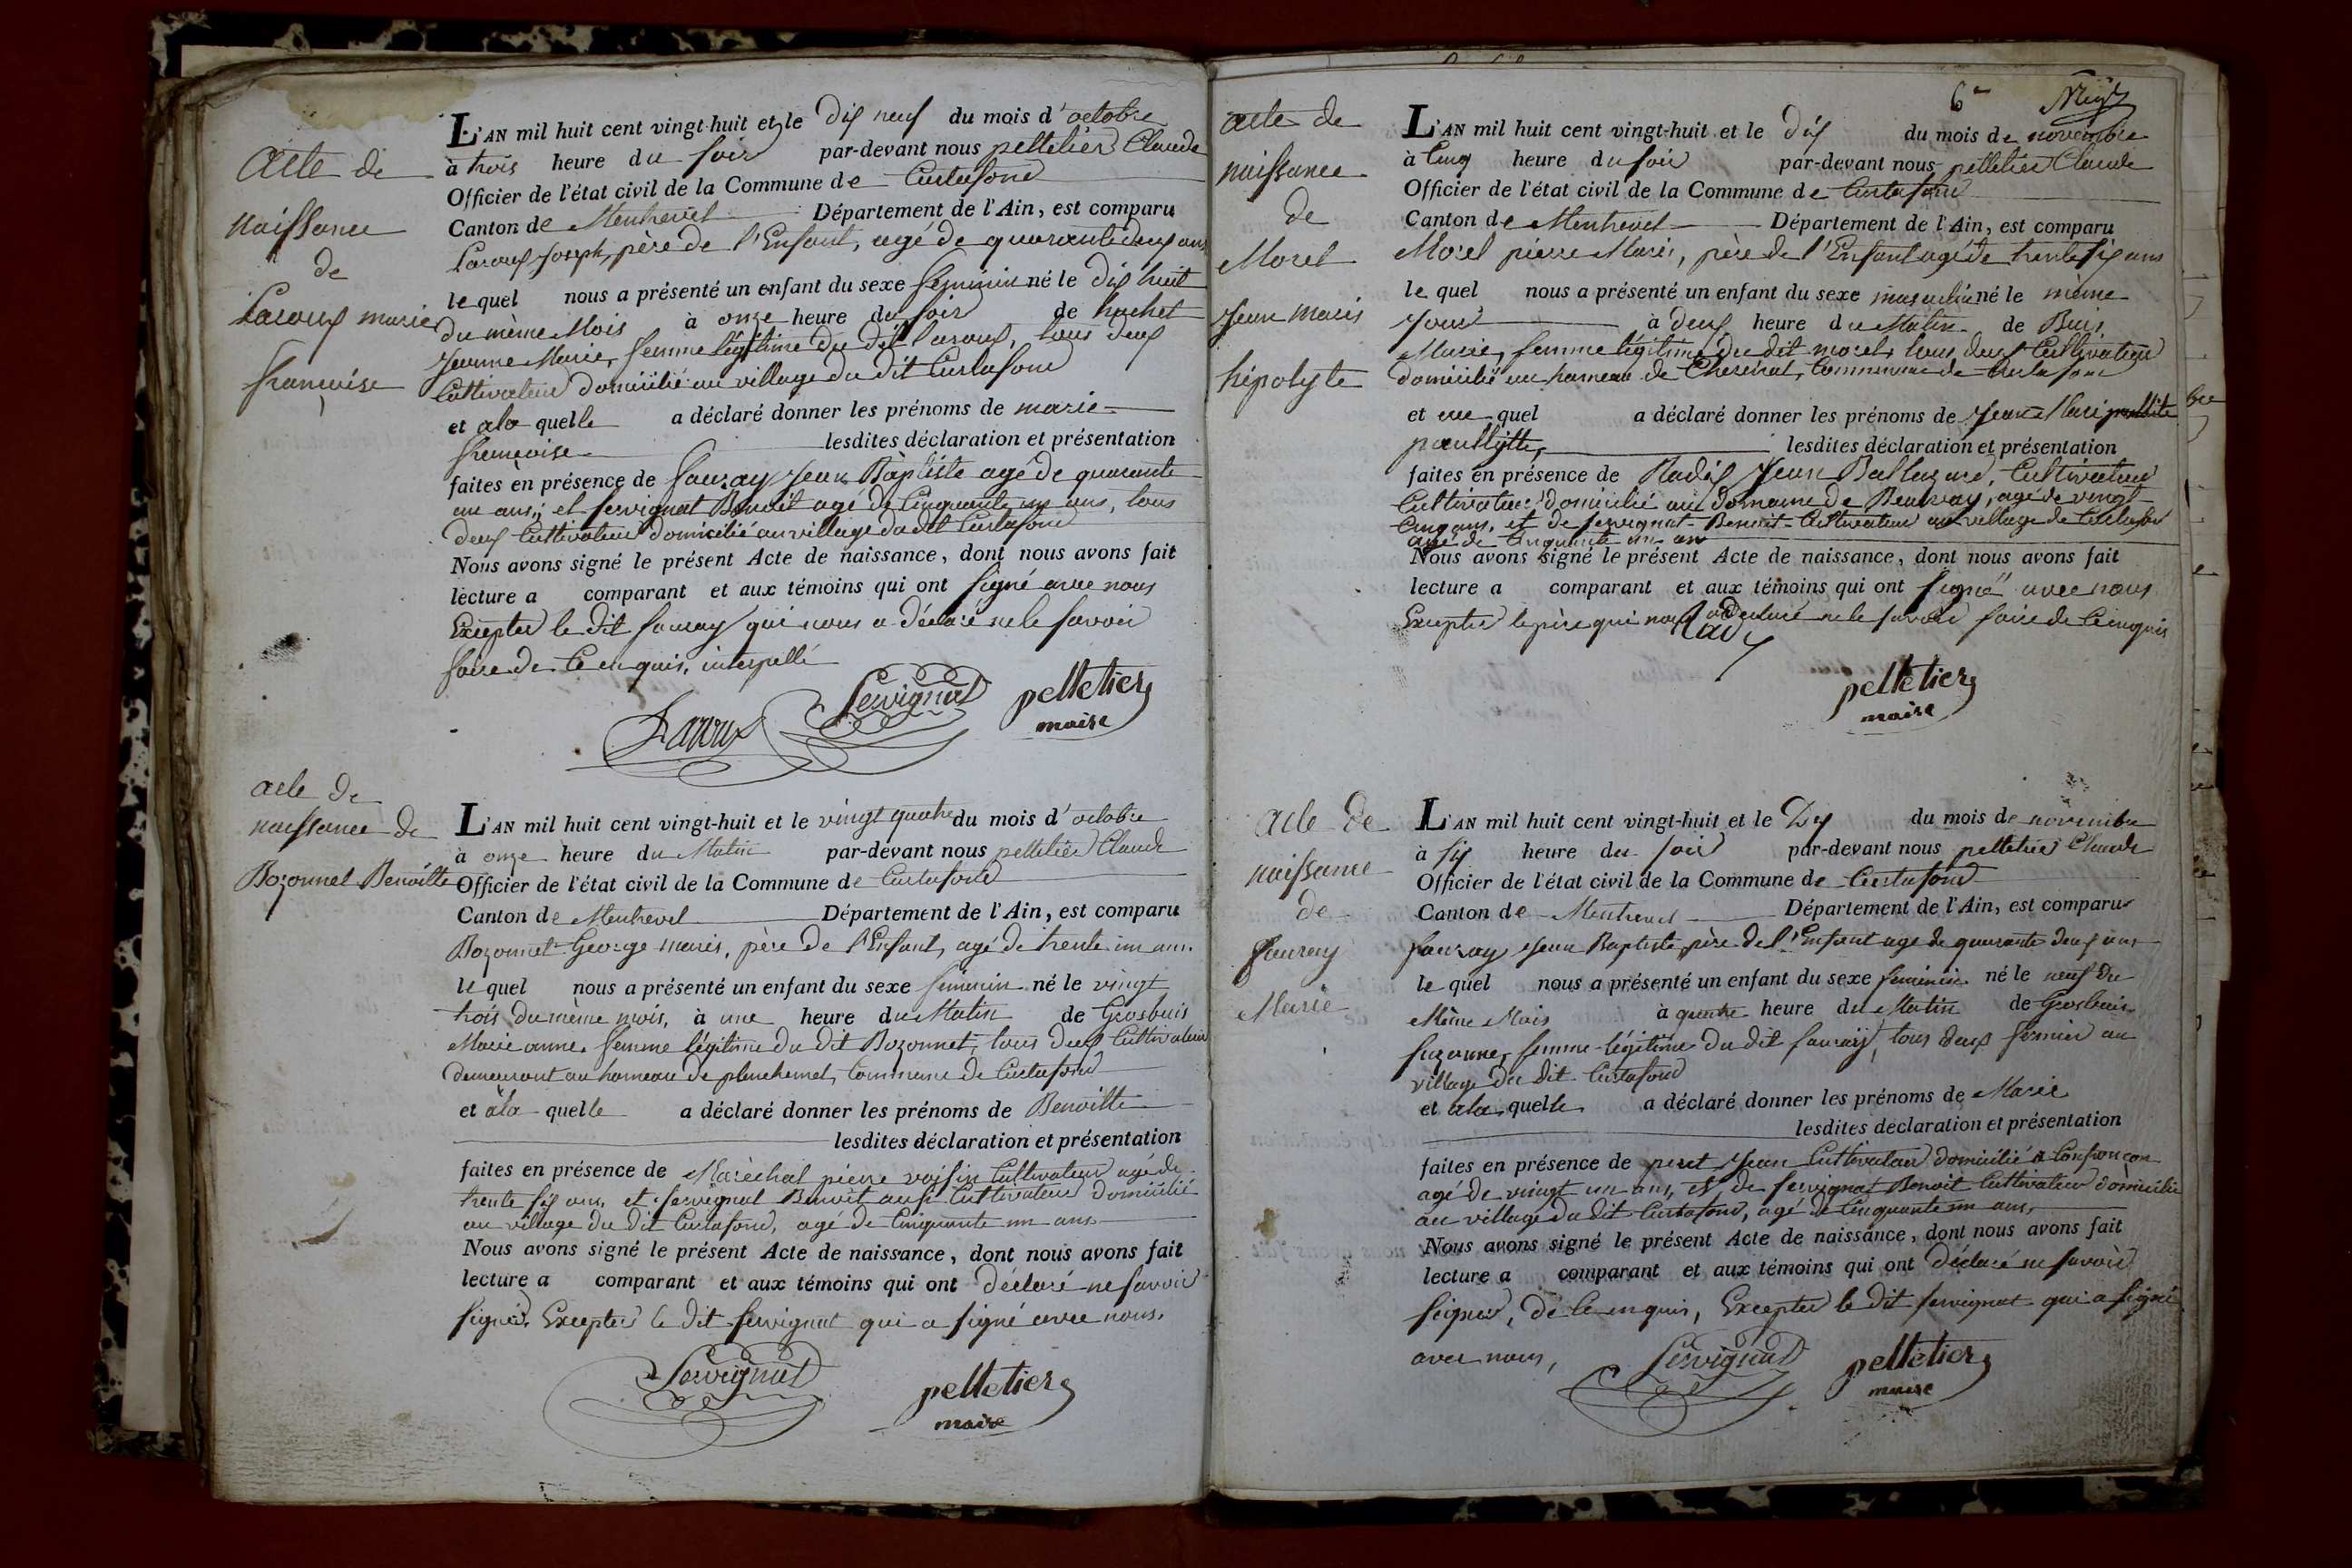 acte de
naissance
de
Laroux marie
francoise
L'AN mil huit cent vingt-huit et le dix neuf du mois d'octobre
à trois heure du soir par-devant nous pelletier Claude
Officier de l'état civil de la Commune de Curtafond
Canton de Montrevel Département de l'Ain, est comparu
Laroux Joseph, père de l'Enfant, agé de quarante deux ans
le quel nous a présenté un enfant du sexe féminin né le dix huit
du même Mois à onze heure du soir de hochet
Jeanne Marie, femme légitime du dit Laroux, tous deux
Cultivateur domicilié au village du dit Curtafond
et a la quelle a déclaré donner les prénoms de marie
francoise lesdites déclaration et présentation
faites en présence de fauray Jean Baptiste agé de quarante
un ans, et servignat Benoit agé de Cinquante un ans, tous
deux Cultivateur domicilié au village du dit Curtafond
Nous avons signé le présent Acte de naissance, dont nous avons fait
lecture a comparant et aux témoins qui ont signé avec nous
Excepter le dit fauray qui nous a déclaré ne le savoir
faire de Ce enquis, interpellé
Laroux Servignat pelletier
maire
acte de
naissance de
Bozonnet Benoitte
L'AN mil huit cent vingt-huit et le vingt quatre du mois d'octobre
à onze heure du Matin par-devant nous pelletier Claude
Officier de l'état civil de la Commune de Curtafond
Canton de Montrevel Département de l'Ain, est comparu
Bozonnet George marie, père de l'Enfant, agé de trente un ans.
le quel nous a présenté un enfant du sexe feminin né le vingt
trois du même mois, à une heure du Matin de Grosbuis
Marie anne, femme légitime du dit Bozonnet, tous deux Cultivateur
demeurant au hameau de planchemel, Commune de Curtafond
et à la quelle a déclaré donner les prénoms de Benoitte
lesdites déclaration et présentation
faites en présence de Maréchal pierre voisin Cultivateur agé de
trente six ans, et servignat Benoit aussi Cultivateur domicilié
au village du dit Curtafond, agé de Cinquante un ans
Nous avons signé le présent Acte de naissance, dont nous avons fait
lecture a comparant et aux témoins qui ont déclaré ne savoir
signer, Excepter le dit Servignat qui a signé avec nous.
Servignat pelletier
maire
6e
acte de
naissance
de
Morel
Jean Marie
hipolyte
L'AN mil huit cent vingt-huit et le dix du mois de novembre
à Cinq heure du soir par-devant nous pelletier Claude
Officier de l'état civil de la Commune de Curtafond
Canton de Montrevel Département de l'Ain, est comparu
Morel pierre Marie, père de l'Enfant agé de trente six ans
le quel nous a présenté un enfant du sexe masculin né le meme
Jour à deux heure du Matin de Buis
Marie, femme légitime du dit morel, tous deux Cultivateur
domicilié au hameau de Chesenal, Commune de Curtafond
et au quel a déclaré donner les prénoms de Jean Marie
lesdites déclaration et présentation
faites en présence de Radix Jean Baltazard, Cultivateur
Cultivateur domicilié au domaine de Beauvay, agé de vingt
Cinq ans, et de servignat Benoit Cultivateur au village de Curtafond
agé de Cinquante un an
Nous avons signé le présent Acte de naissance, dont nous avons fait
lecture a comparant et aux témoins qui ont signé avec nous
Excepter le père qui nous a déclaré ne le savoir faire de Ce enquis
Radix
pelletier
maire
acte de
naissance
de
fauray
Marie
L'AN mil huit cent vingt-huit et le Dix du mois de novembre
à six heure du soir par-devant nous pelletier Claude
Officier de l'état civil de la Commune de Curtafond
Canton de Montrevel Département de l'Ain, est comparu
fauray Jean Baptiste père de l'Enfant agé de quarante deux ans
le quel nous a présenté un enfant du sexe feminin né le neuf du
Même Mois à quatre heure du Matin de Grosbuis
suzanne, femme légitime du dit fauray, tous deux fermier au
village du dit Curtafond
et a la quelle a déclaré donner les prénoms de Marie
lesdites déclaration et présentation
faites en présence de peret Jean Cultivateur domicilié a Confrancon
agé de vingt un ans, et de servignat Benoit Cultivateur domicilié
au village du dit Curtafond, agé de Cinquante un ans,
Nous avons signé le présent Acte de naissance, dont nous avons fait
lecture a comparant et aux témoins qui ont Déclaré ne savoir
signer, de Ce enquis, Excepter le dit servignat qui a signé
avec nous,
Servignat pelletier
maire